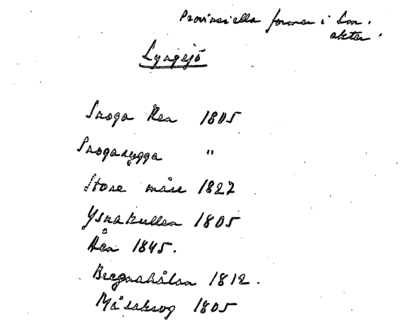 Provinsiella former i Lm.
akter.
Lyngsjö
Snoga Hen 1805
Snogarygga "
Store måse 1827
Ysnakullen 1805
Åen 1845.
Bregnahålan 1812.
Måsakrog 1805